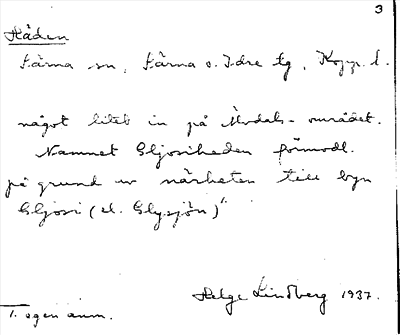 3
Håden
Särna sn, Särna o. Idre tg, Kopp. l.
något litet in på Älvdals-området.
Namnet Gljosiheden förmodl.
på grund av närheten till byn
Gljosi (el. Glysjön)¹⁾
Helge Lindberg 1937.
1. egen anm.